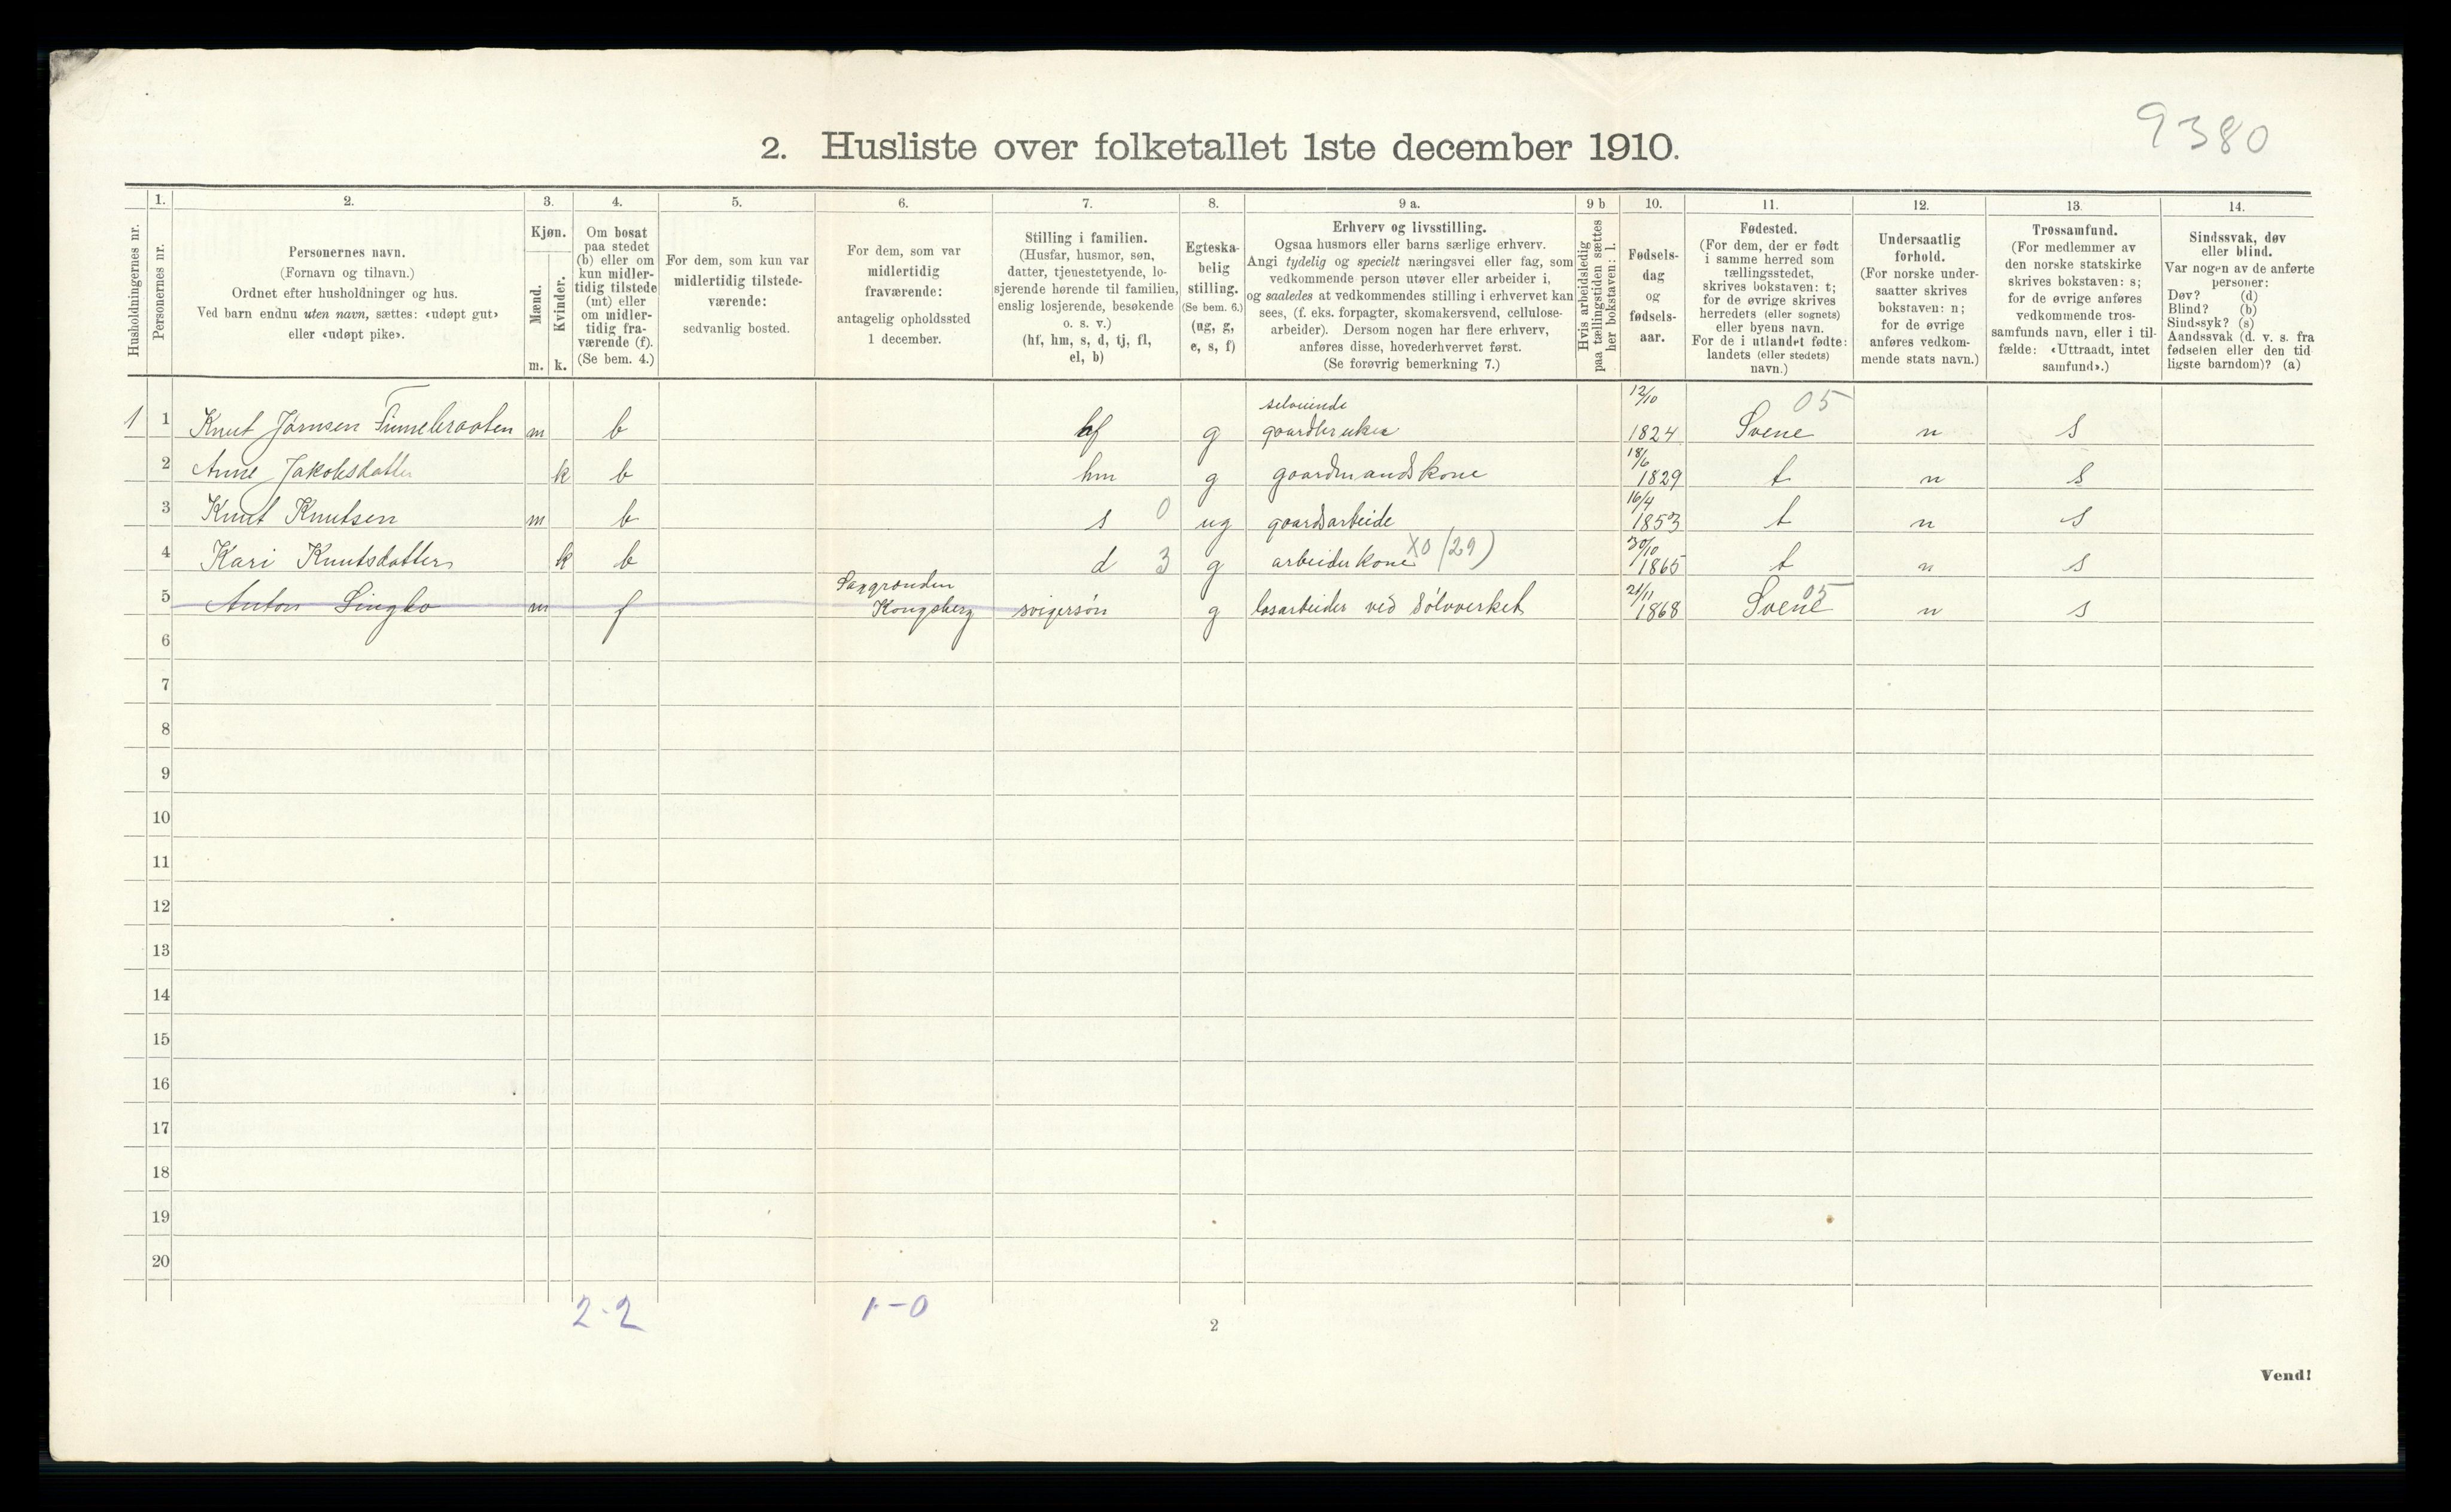 9380
2. Husliste over folketallet 1ste december 1910.
Husholdningernes nr.
1.
Personernes nr.
2.
Personernes navn.
(Fornavn og tilnavn.)
Ordnet efter husholdninger og hus.
Ved barn endnu uten navn, sættes: «udøpt gut»
eller «udøpt pike».
3.
Kjøn.
Mænd.
Kvinder.
m. k.
4.
Om bosat
paa stedet
(b) eller om
kun midler-
tidig tilstede
(mt) eller
om midler-
tidig fra-
værende (f).
(Se bem. 4.)
5.
For dem, som kun var
midlertidig tilstede-
værende:
sedvanlig bosted.
6.
For dem, som var
midlertidig
fraværende:
antagelig opholdssted
1 december.
7.
Stilling i familien.
(Husfar, husmor, søn,
datter, tjenestetyende, lo-
sjerende hørende til familien,
enslig losjerende, besøkende
o. s. v.)
(hf, hm, s, d, tj, fl,
el, b)
8.
Egteska-
belig
stilling.
(Se bem. 6.)
(ug, g,
e, s, f)
9 a.
Erhverv og livsstilling.
Ogsaa husmors eller barns særlige erhverv.
Angi tydelig og specielt næringsvei eller fag, som
vedkommende person utøver eller arbeider i,
og saaledes at vedkommendes stilling i erhvervet kan
sees, (f. eks. forpagter, skomakersvend, cellulose-
arbeider). Dersom nogen har flere erhverv,
anføres disse, hovederhvervet først.
(Se forøvrig bemerkning 7.)
9 b
Hvis arbeidsledig
paa tællingstiden sættes
her bokstaven: l.
10.
Fødsels-
dag
og
fødsels-
aar.
11.
Fødested.
(For dem, der er født
i samme herred som
tællingsstedet,
skrives bokstaven: t;
for de øvrige skrives
herredets (eller sognets)
eller byens navn.
For de i utlandet fødte:
landets (eller stedets)
navn.)
12.
Undersaatlig
forhold.
(For norske under-
saatter skrives
bokstaven: n;
for de øvrige
anføres vedkom-
mende stats navn.)
13.
Trossamfund.
(For medlemmer av
den norske statskirke
skrives bokstaven: s;
for de øvrige anføres
vedkommende tros-
samfunds navn, eller i til-
fælde: «Uttraadt, intet
samfund».)
14.
Sindssvak, døv
eller blind.
Var nogen av de anførte
personer:
Døv? (d)
Blind? (b)
Sindssyk? (s)
Aandssvak (d. v. s. fra
fødselen eller den tid-
ligste barndom)? (a)
selveiende 12/10 05
1 1 Knut Jørnsen m b hf g gaardbruker 1824 Svene n s
18/6
2 Anne Jakobsdatter k b hm g gaardmandskone 1829 t n s
16/4
3 Knut Knutsen m b s 0 ug gaardsarbeide 1853 t n s
30/10
4 Kari Knutsdatter k b d 3 g arbeiderkone X0 (29) 1865 t n s
Saggrenden 21/11 05
5 Anton Lingbo m f Kongsberg svigersøn g losarbeider ved Sølvverket 1868 Svene n s
6
7
8
9
10
11
12
13
14
15
16
17
18
19
20
2-2 1-0
2
Vend!